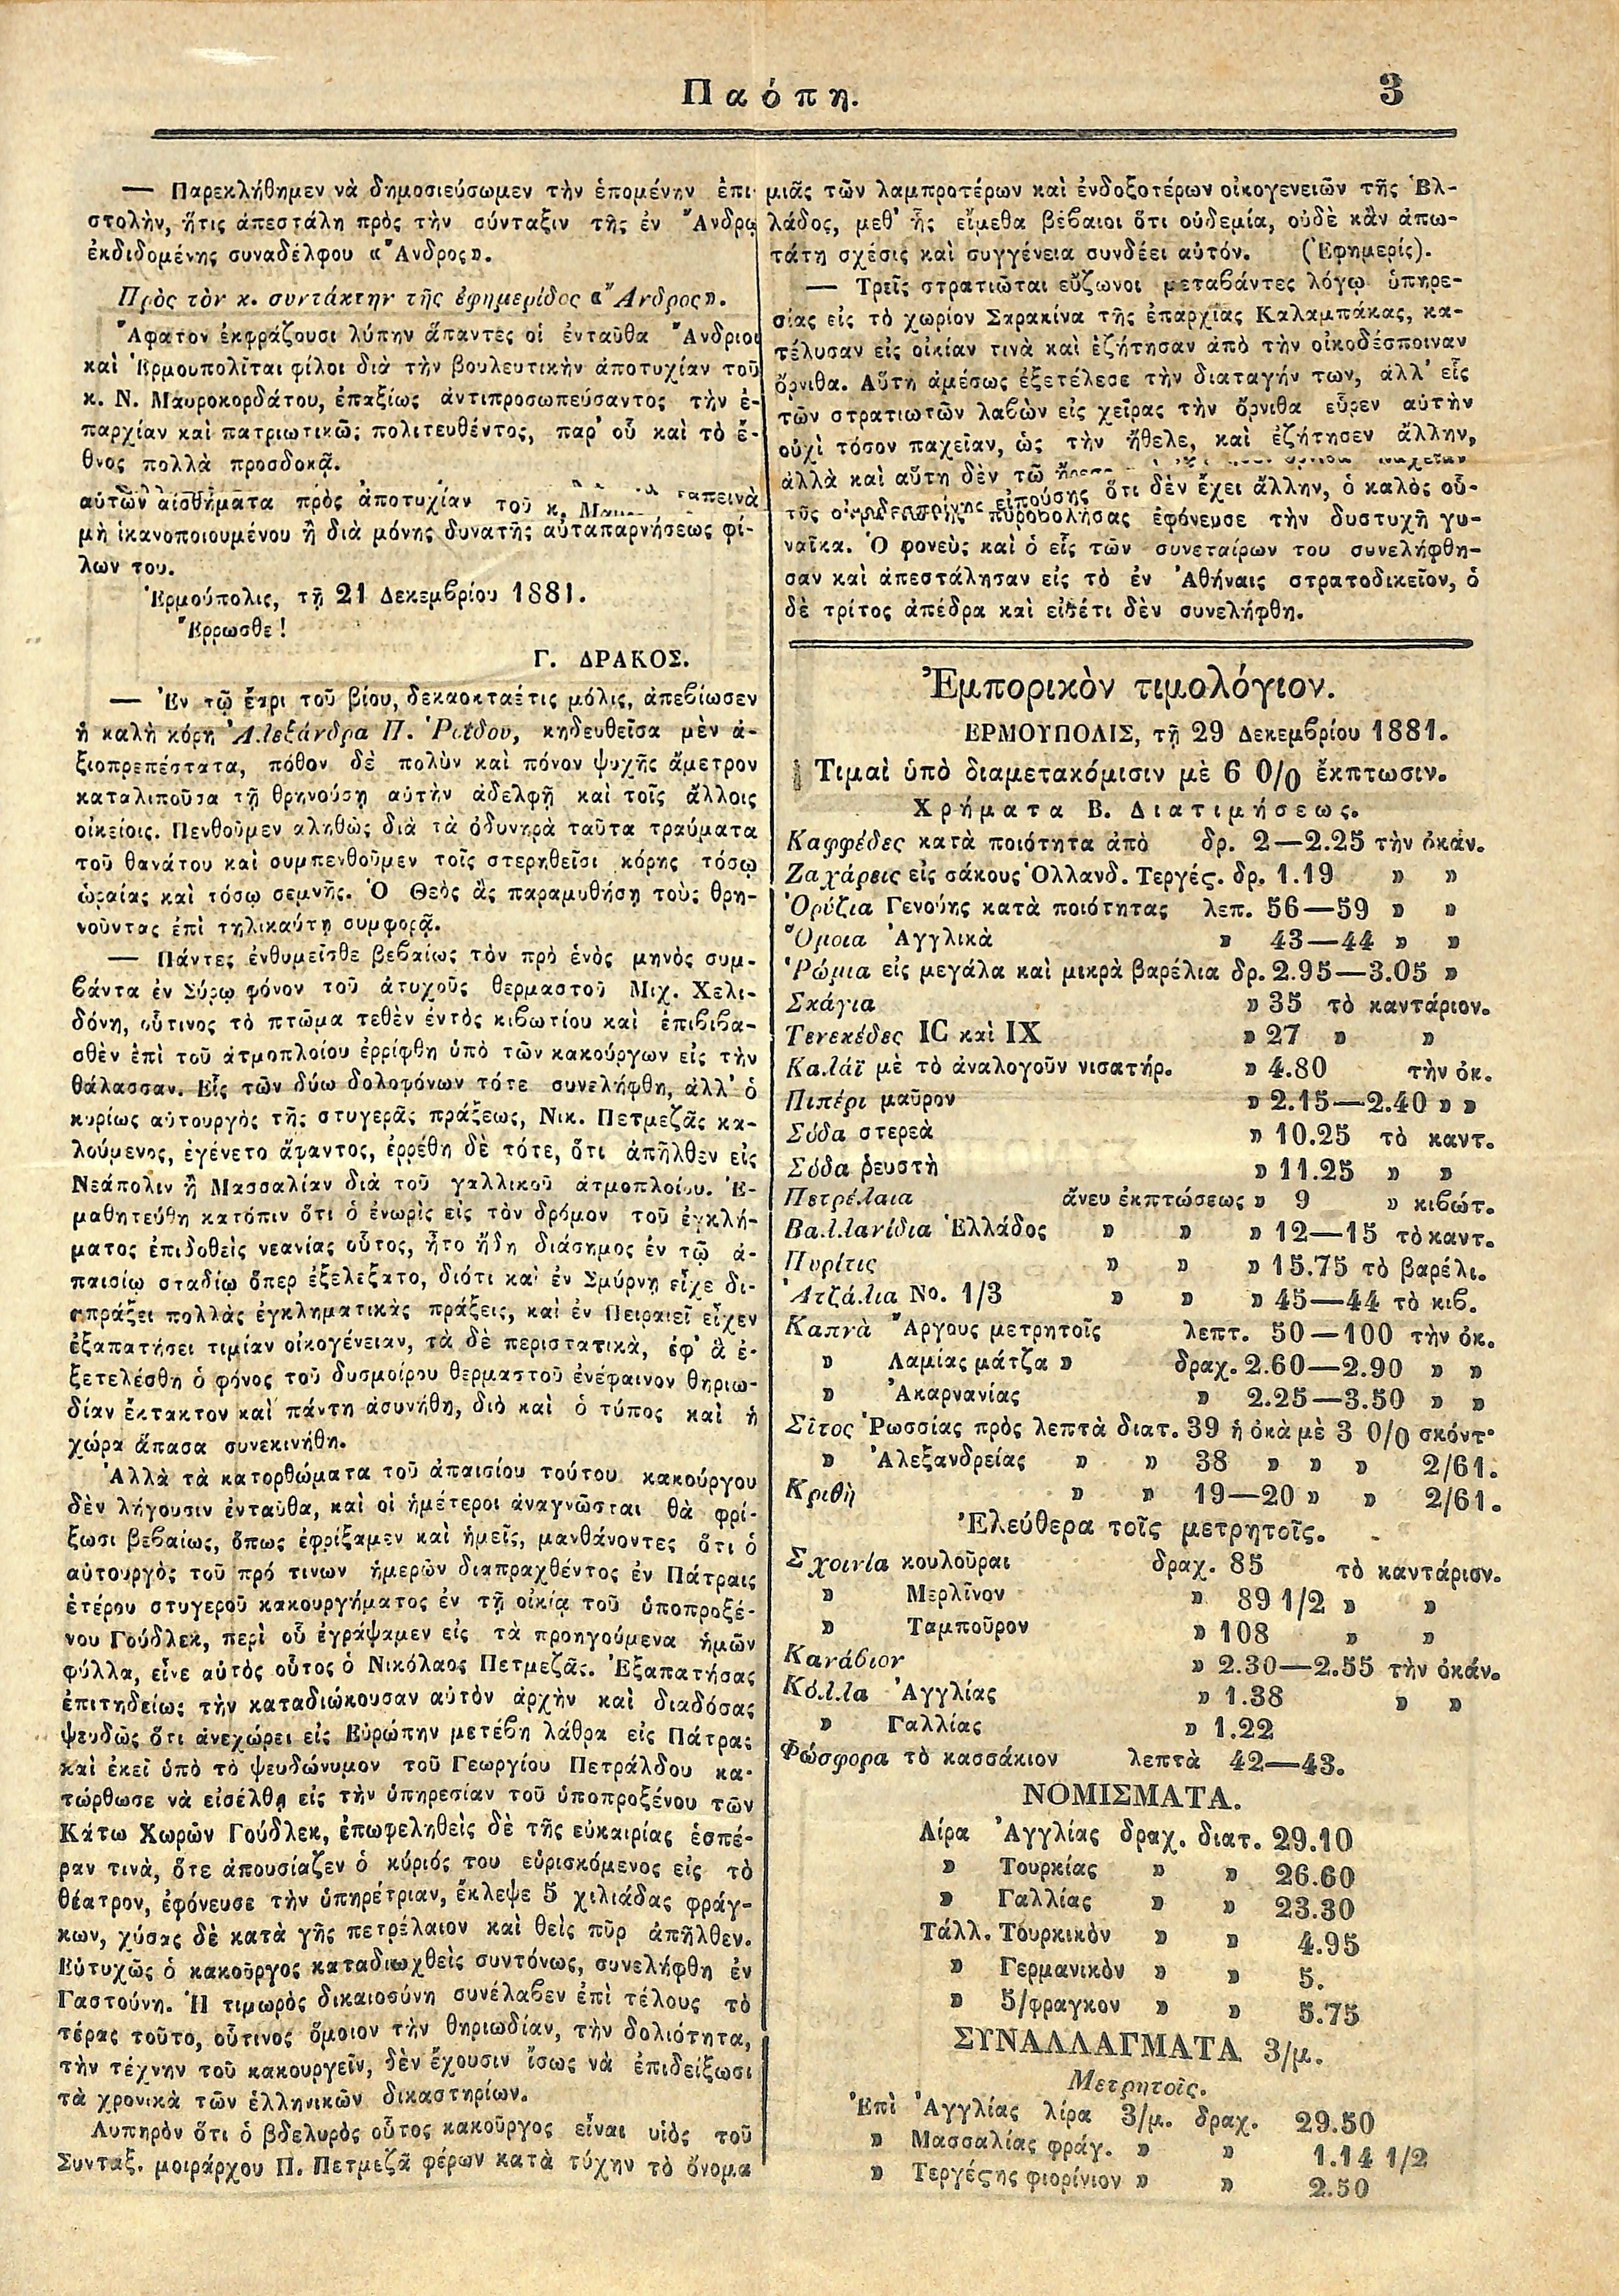 Παόπη.
3
— Παρεκλήθημεν νὰ δημοσιεύσωμεν τὴν ἑπομένην ἐπι-
στολὴν, ἥτις ἀπεστάλη πρὸς τὴν σύνταξιν τῆς ἐν Ἄνδρῳ
ἐκδιδομένης συναδέλφου «Ἄνδρος».
Πρὸς τὸν κ. συντάκτην τῆς ἐφημερίδος «Ἄνδρος».
Ἄφατον ἐκφράζουσι λύπην ἅπαντες οἱ ἐνταῦθα Ἄνδριοι
καὶ Ἑρμουπολῖται φίλοι διὰ τὴν βουλευτικὴν ἀποτυχίαν τοῦ
κ. Ν. Μαυροκορδάτου, ἐπαξίως ἀντιπροσωπεύσαντος τὴν ἐ-
παρχίαν καὶ πατριωτικῶς πολιτευθέντος, παρ' οὗ καὶ τὸ ἔ-
θνος πολλὰ προσδοκᾷ.
ταπεινὰ
αὐτῶν αἰσθήματα πρὸς ἀποτυχίαν τοῦ κ.
μὴ ἱκανοποιουμένου ἢ διὰ μόνης δυνατῆς αὐταπαρνήσεως φί-
λων του.
Ἑρμούπολις, τῇ 21 Δεκεμβρίου 1881.
Ἔρρωσθε!
Γ. ΔΡΑΚΟΣ.
— Ἐν τῷ ἔαρι τοῦ βίου, δεκαοκταέτις μόλις, ἀπεβίωσεν
ἡ καλὴ κόρη Ἀλεξάνδρα Π. Ῥεΐδου, κηδευθεῖσα μὲν ἀ-
ξιοπρεπέστατα, πόθον δὲ πολὺν καὶ πόνον ψυχῆς ἄμετρον
καταλιποῦσα τῇ θρηνούσῃ αὐτὴν ἀδελφῇ καὶ τοῖς ἄλλοις
οἰκείοις. Πενθοῦμεν ἀληθῶς διὰ τὰ ὀδυνηρὰ ταῦτα τραύματα
τοῦ θανάτου καὶ συμπενθοῦμεν τοῖς στερηθεῖσι κόρης τόσῳ
ὡραίας καὶ τόσῳ σεμνῆς. Ὁ Θεὸς ἂς παραμυθήσῃ τοὺς θρη-
νοῦντας ἐπὶ τηλικαύτῃ συμφορᾷ.
— Πάντες ἐνθυμεῖσθε βεβαίως τὸν πρὸ ἑνὸς μηνὸς συμ-
βάντα ἐν Σύρῳ φόνον τοῦ ἀτυχοῦς θερμαστοῦ Μιχ. Χελι-
δόνη, οὗτινος τὸ πτῶμα τεθὲν ἐντὸς κιβωτίου καὶ ἐπιβιβα-
σθὲν ἐπὶ τοῦ ἀτμοπλοίου ἐρρίφθη ὑπὸ τῶν κακούργων εἰς τὴν
θάλασσαν. Εἷς τῶν δύω δολοφόνων τότε συνελήφθη, ἀλλ' ὁ
κυρίως αὐτουργὸς τῆς στυγερᾶς πράξεως, Νικ. Πετμεζᾶς κα-
λούμενος, ἐγένετο ἄφαντος, ἐρρέθη δὲ τότε, ὅτι ἀπῆλθεν εἰς
Νεάπολιν ἢ Μασσαλίαν διὰ τοῦ γαλλικοῦ ἀτμοπλοίου. Ἐ-
μαθητεύθη κατόπιν ὅτι ὁ ἐνωρὶς εἰς τὸν δρόμον τοῦ ἐγκλή-
ματος ἐπιδοθεὶς νεανίας οὗτος, ἦτο ἤδη διάσημος ἐν τῷ ἀ-
παισίῳ σταδίῳ ὅπερ ἐξελέξατο, διότι καὶ ἐν Σμύρνῃ εἶχε δι-
απράξει πολλὰς ἐγκληματικὰς πράξεις, καὶ ἐν Πειραιεῖ εἶχεν
ἐξαπατήσει τιμίαν οἰκογένειαν, τὰ δὲ περιστατικὰ, ἐφ' ἃ ἐ-
ξετελέσθη ὁ φόνος τοῦ δυσμοίρου θερμαστοῦ ἐνέφαινον θηριω-
δίαν ἔκτακτον καὶ πάντη ἀσυνήθη, διὸ καὶ ὁ τύπος καὶ ἡ
χώρα ἅπασα συνεκινήθη.
Ἀλλὰ τὰ κατορθώματα τοῦ ἀπαισίου τούτου κακούργου
δὲν λήγουσιν ἐνταῦθα, καὶ οἱ ἡμέτεροι ἀναγνῶσται θὰ φρί-
ξωσι βεβαίως, ὅπως ἐφρίξαμεν καὶ ἡμεῖς, μανθάνοντες ὅτι ὁ
αὐτουργὸς τοῦ πρό τινων ἡμερῶν διαπραχθέντος ἐν Πάτραις
ἑτέρου στυγεροῦ κακουργήματος ἐν τῇ οἰκίᾳ τοῦ ὑποπροξέ-
νου Γούδλεκ, περὶ οὗ ἐγράψαμεν εἰς τὰ προηγούμενα ἡμῶν
φύλλα, εἶνε αὐτὸς οὗτος ὁ Νικόλαος Πετμεζᾶς. Ἐξαπατήσας
ἐπιτηδείως τὴν καταδιώκουσαν αὐτὸν ἀρχὴν καὶ διαδόσας
ψευδῶς ὅτι ἀνεχώρει εἰς Εὐρώπην μετέβη λάθρα εἰς Πάτρας
καὶ ἐκεῖ ὑπὸ τὸ ψευδώνυμον τοῦ Γεωργίου Πετράλδου κα-
τώρθωσε νὰ εἰσέλθῃ εἰς τὴν ὑπηρεσίαν τοῦ ὑποπροξένου τῶν
Κάτω Χωρῶν Γούδλεκ, ἐπωφεληθεὶς δὲ τῆς εὐκαιρίας ἑσπέ-
ραν τινὰ, ὅτε ἀπουσίαζεν ὁ κύριός του εὑρισκόμενος εἰς τὸ
θέατρον, ἐφόνευσε τὴν ὑπηρέτριαν, ἔκλεψε 5 χιλιάδας φράγ-
κων, χύσας δὲ κατὰ γῆς πετρέλαιον καὶ θεὶς πῦρ ἀπῆλθεν.
Εὐτυχῶς ὁ κακοῦργος καταδιωχθεὶς συντόνως, συνελήφθη ἐν
Γαστούνῃ. Ἡ τιμωρὸς δικαιοσύνη συνέλαβεν ἐπὶ τέλους τὸ
τέρας τοῦτο, οὗτινος ὅμοιον τὴν θηριωδίαν, τὴν δολιότητα,
τὴν τέχνην τοῦ κακουργεῖν, δὲν ἔχουσιν ἴσως νὰ ἐπιδείξωσι
τὰ χρονικὰ τῶν ἑλληνικῶν δικαστηρίων.
Λυπηρὸν ὅτι ὁ βδελυρὸς οὗτος κακοῦργος εἶναι υἱὸς τοῦ
Συνταξ. μοιράρχου Π. Πετμεζᾶ φέρων κατὰ τύχην τὸ ὄνομα
μιᾶς τῶν λαμπροτέρων καὶ ἐνδοξοτέρων οἰκογενειῶν τῆς Ἑλ-
λάδος, μεθ' ἧς εἴμεθα βέβαιοι ὅτι οὐδεμία, οὐδὲ κἂν ἀπω-
τάτη σχέσις καὶ συγγένεια συνδέει αὐτόν. (Ἐφημερίς).
— Τρεῖς στρατιῶται εὔζωνοι μεταβάντες λόγῳ ὑπηρε-
σίας εἰς τὸ χωρίον Σαρακίνα τῆς ἐπαρχίας Καλαμπάκας, κα-
τέλυσαν εἰς οἰκίαν τινὰ καὶ ἐζήτησαν ἀπὸ τὴν οἰκοδέσποιναν
ὄρνιθα. Αὕτη ἀμέσως ἐξετέλεσε τὴν διαταγήν των, ἀλλ' εἷς
τῶν στρατιωτῶν λαβὼν εἰς χεῖρας τὴν ὄρνιθα εὗρεν αὐτὴν
οὐχὶ τόσον παχεῖαν, ὡς τὴν ἤθελε, καὶ ἐζήτησεν ἄλλην,
ἀλλὰ καὶ αὕτη δὲν τῷ ἤρεσε
εἰπούσης ὅτι δὲν ἔχει ἄλλην, ὁ καλὸς οὗ-
τος πυροβολήσας ἐφόνευσε τὴν δυστυχῆ γυ-
ναῖκα. Ὁ φονεὺς καὶ ὁ εἷς τῶν συνεταίρων του συνελήφθη-
σαν καὶ ἀπεστάλησαν εἰς τὸ ἐν Ἀθήναις στρατοδικεῖον, ὁ
δὲ τρίτος ἀπέδρα καὶ εἰσέτι δὲν συνελήφθη.
Ἐμπορικὸν τιμολόγιον.
ΕΡΜΟΥΠΟΛΙΣ, τῇ 29 Δεκεμβρίου 1881.
Τιμαὶ ὑπὸ διαμετακόμισιν μὲ 6 0/0 ἔκπτωσιν.
Χρήματα Β. Διατιμήσεως.
Καφφέδες κατὰ ποιότητα ἀπὸ δρ. 2—2.25 τὴν ὀκάν.
Ζαχάρεις εἰς σάκους Ὁλλανδ. Τεργές. δρ. 1.19 » »
Ὀρύζια Γενούης κατὰ ποιότητας λεπ. 56—59 » »
Ὅμοια Ἀγγλικὰ » 43—44 » »
Ῥώμια εἰς μεγάλα καὶ μικρὰ βαρέλια δρ. 2.95—3.05 »
Σκάγια » 35 τὸ καντάριον.
Τενεκέδες IC καὶ IX » 27 » »
Καλάϊ μὲ τὸ ἀναλογοῦν νισατήρ. » 4.80 τὴν ὀκ.
Πιπέρι μαῦρον » 2.15—2.40 » »
Σόδα στερεὰ » 10.25 τὸ καντ.
Σόδα ῥευστὴ » 11.25 » »
Πετρέλαια ἄνευ ἐκπτώσεως » 9 » κιβώτ.
Βαλλανίδια Ἑλλάδος » » » 12—15 τὸ καντ.
Πυρίτις » » » 15.75 τὸ βαρέλι.
Ἀτζάλια Νο. 1/3 » » » 45—44 τὸ κιβ.
Καπνὰ Ἄργους μετρητοῖς λεπτ. 50—100 τὴν ὀκ.
» Λαμίας μάτζα » δραχ. 2.60—2.90 » »
» Ἀκαρνανίας » 2.25—3.50 » »
Σῖτος Ῥωσσίας πρὸς λεπτὰ διατ. 39 ἡ ὀκὰ μὲ 3 0/0 σκόντ.
» Ἀλεξανδρείας » » 38 » » » 2/61.
Κριθὴ » » 19—20 » » 2/61.
Ἐλεύθερα τοῖς μετρητοῖς.
Σχοινία κουλοῦραι δραχ. 85 τὸ καντάριον.
» Μερλῖνον » 89 1/2 » »
» Ταμποῦρον » 108 » »
Κανάβιον » 2.30—2.55 τὴν ὀκάν.
Κόλλα Ἀγγλίας » 1.38 » »
» Γαλλίας » 1.22
Φώσφορα τὸ κασσάκιον λεπτὰ 42—43.
ΝΟΜΙΣΜΑΤΑ.
Λίρα Ἀγγλίας δραχ. διατ. 29.10
» Τουρκίας » » 26.60
» Γαλλίας » » 23.30
Τάλλ. Τουρκικὸν » » 4.95
» Γερμανικὸν » » 5.
» 5/φραγκον » » 5.75
ΣΥΝΑΛΛΑΓΜΑΤΑ 3/μ.
Μετρητοῖς.
Ἐπὶ Ἀγγλίας λίρα 3/μ. δραχ. 29.50
» Μασσαλίας φράγ. » » 1.14 1/2
» Τεργέςης φιορίνιον » » 2.50